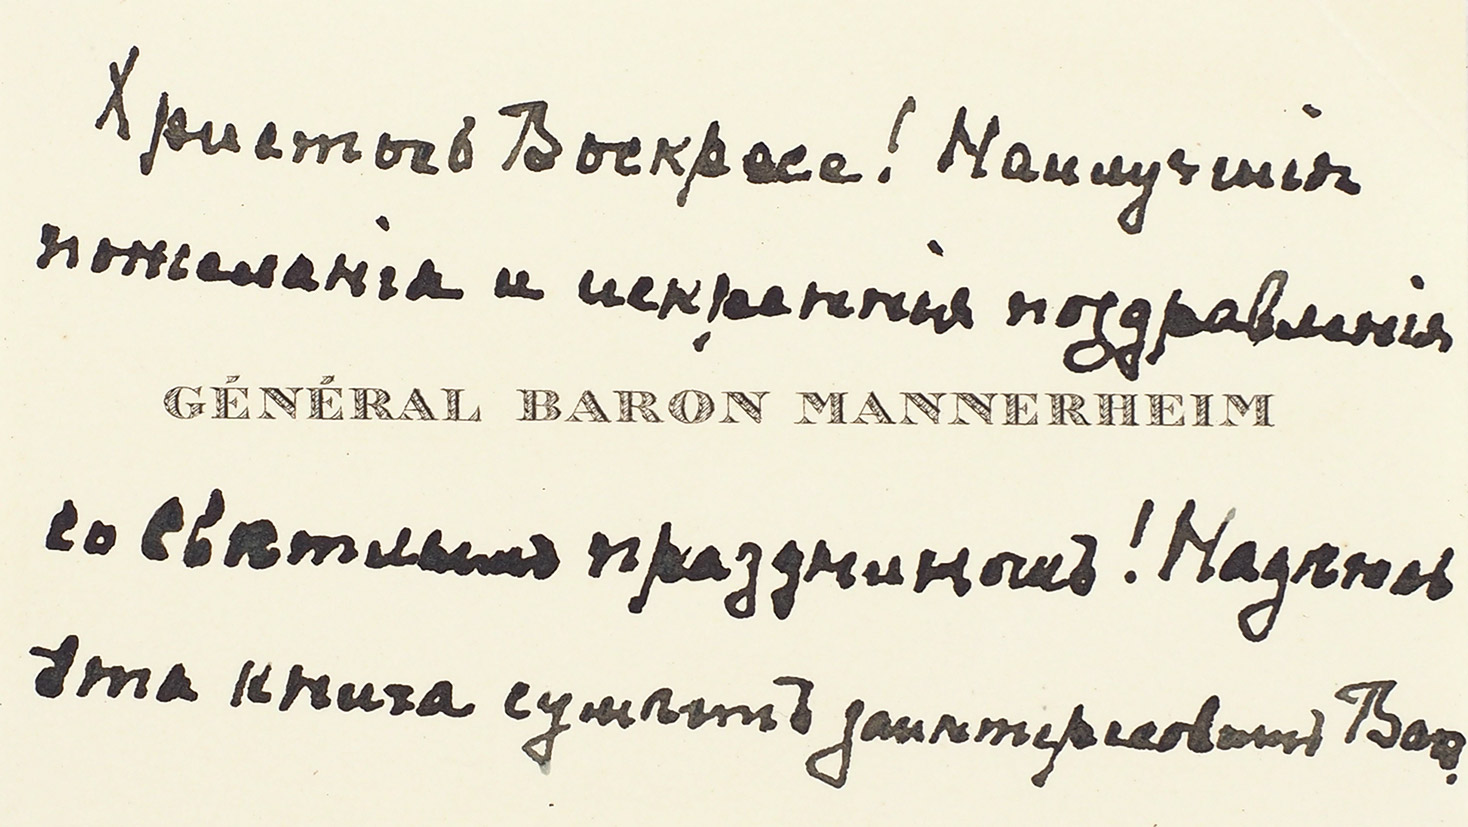 Христосъ Воскресе! Наилучшія
пожеланія и искреннія поздравленія
GÉNÉRAL BARON MANNERHEIM
со Свѣтлымъ праздникомъ! Надѣюсь
эта книга сумѣетъ заинтересовать Вас.